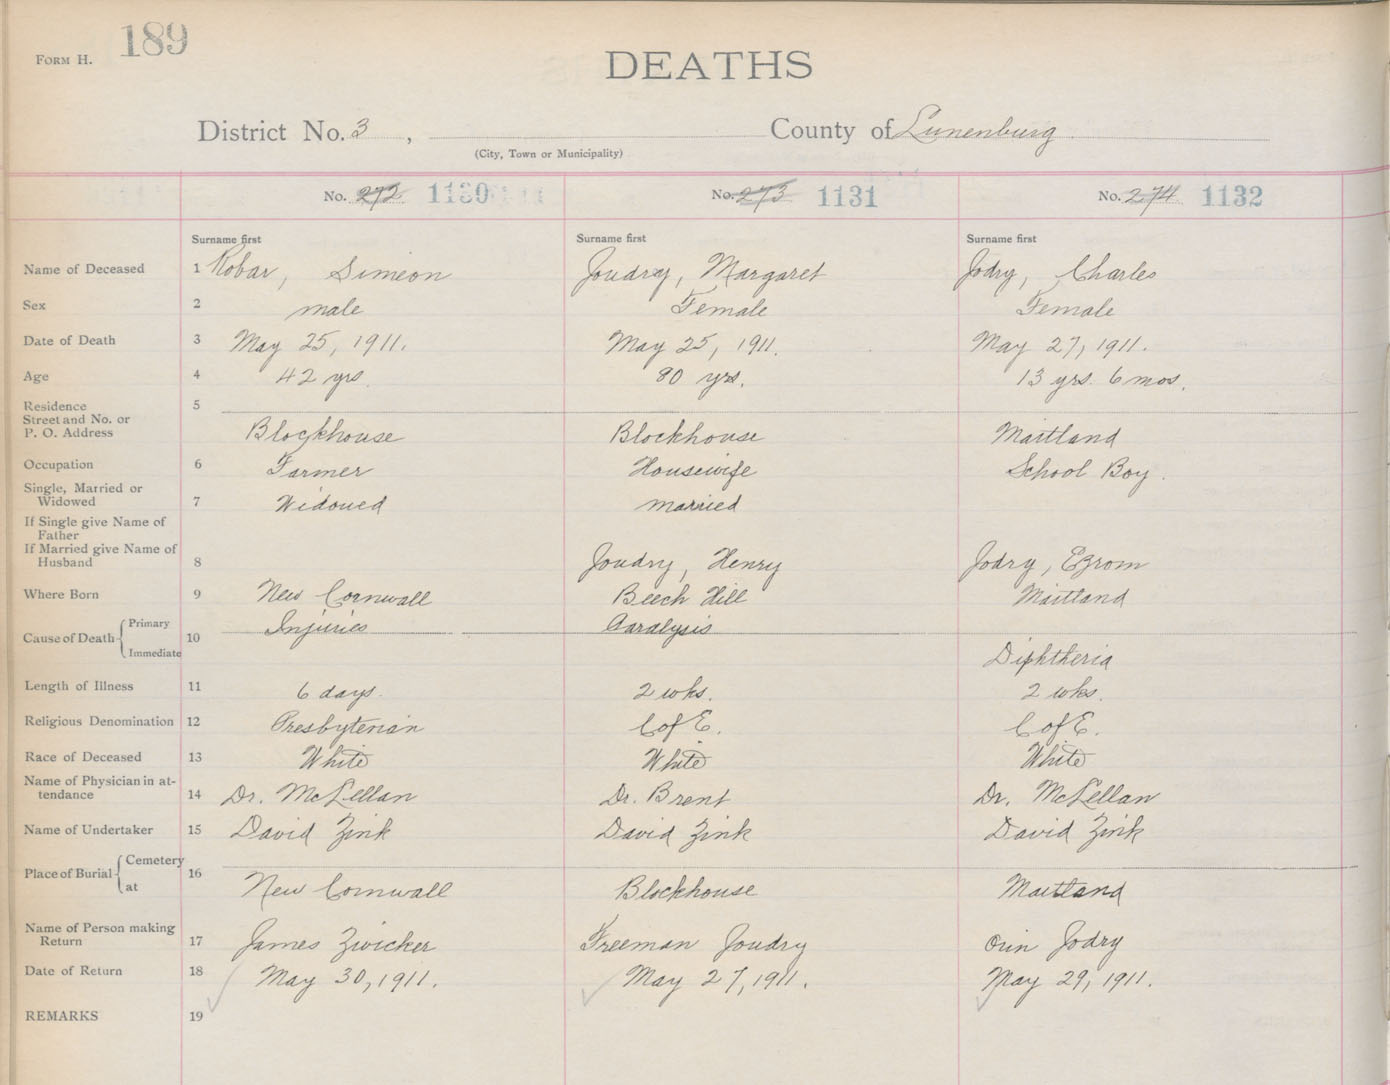 FORM H. 189
DEATHS
District No. 3, County of Lunenburg
(City, Town or Municipality)
No. 272 1130 No. 273 1131 No. 274 1132
Surname first Surname first Surname first
Name of Deceased 1 Robar, Simeon Joudrey, Margaret Jodry, Charles
Sex 2 male Female Female
Date of Death 3 May 25, 1911. May 25, 1911. May 27, 1911.
Age 4 42 yrs. 80 yrs. 13 yrs. 6 mos.
Residence 5
Street and No. or
P. O. Address Blockhouse Blockhouse Maitland
Occupation 6 Farmer Housewife School Boy.
Single, Married or
Widowed 7 Widowed married
If Single give Name of
Father
If Married give Name of
Husband 8 Joudry, Henry Jodry, Ezrom
Where Born 9 New Cornwall Beech Hill Maitland
Cause of Death Primary 10 Injuries Paralysis
Immediate Diphtheria
Length of Illness 11 6 days. 2 wks. 2 wks.
Religious Denomination 12 Presbyterian C of E. C of E.
Race of Deceased 13 White White White
Name of Physician in at-
tendance 14 Dr. McLellan Dr. Brent Dr. McLellan
Name of Undertaker 15 David Zink David Zink David Zink
Place of Burial Cemetery 16
at New Cornwall Blockhouse Maitland
Name of Person making
Return 17 James Zwicker Freeman Joudry Orin Jodry
Date of Return 18 May 30, 1911. May 27, 1911. May 29, 1911.
REMARKS 19